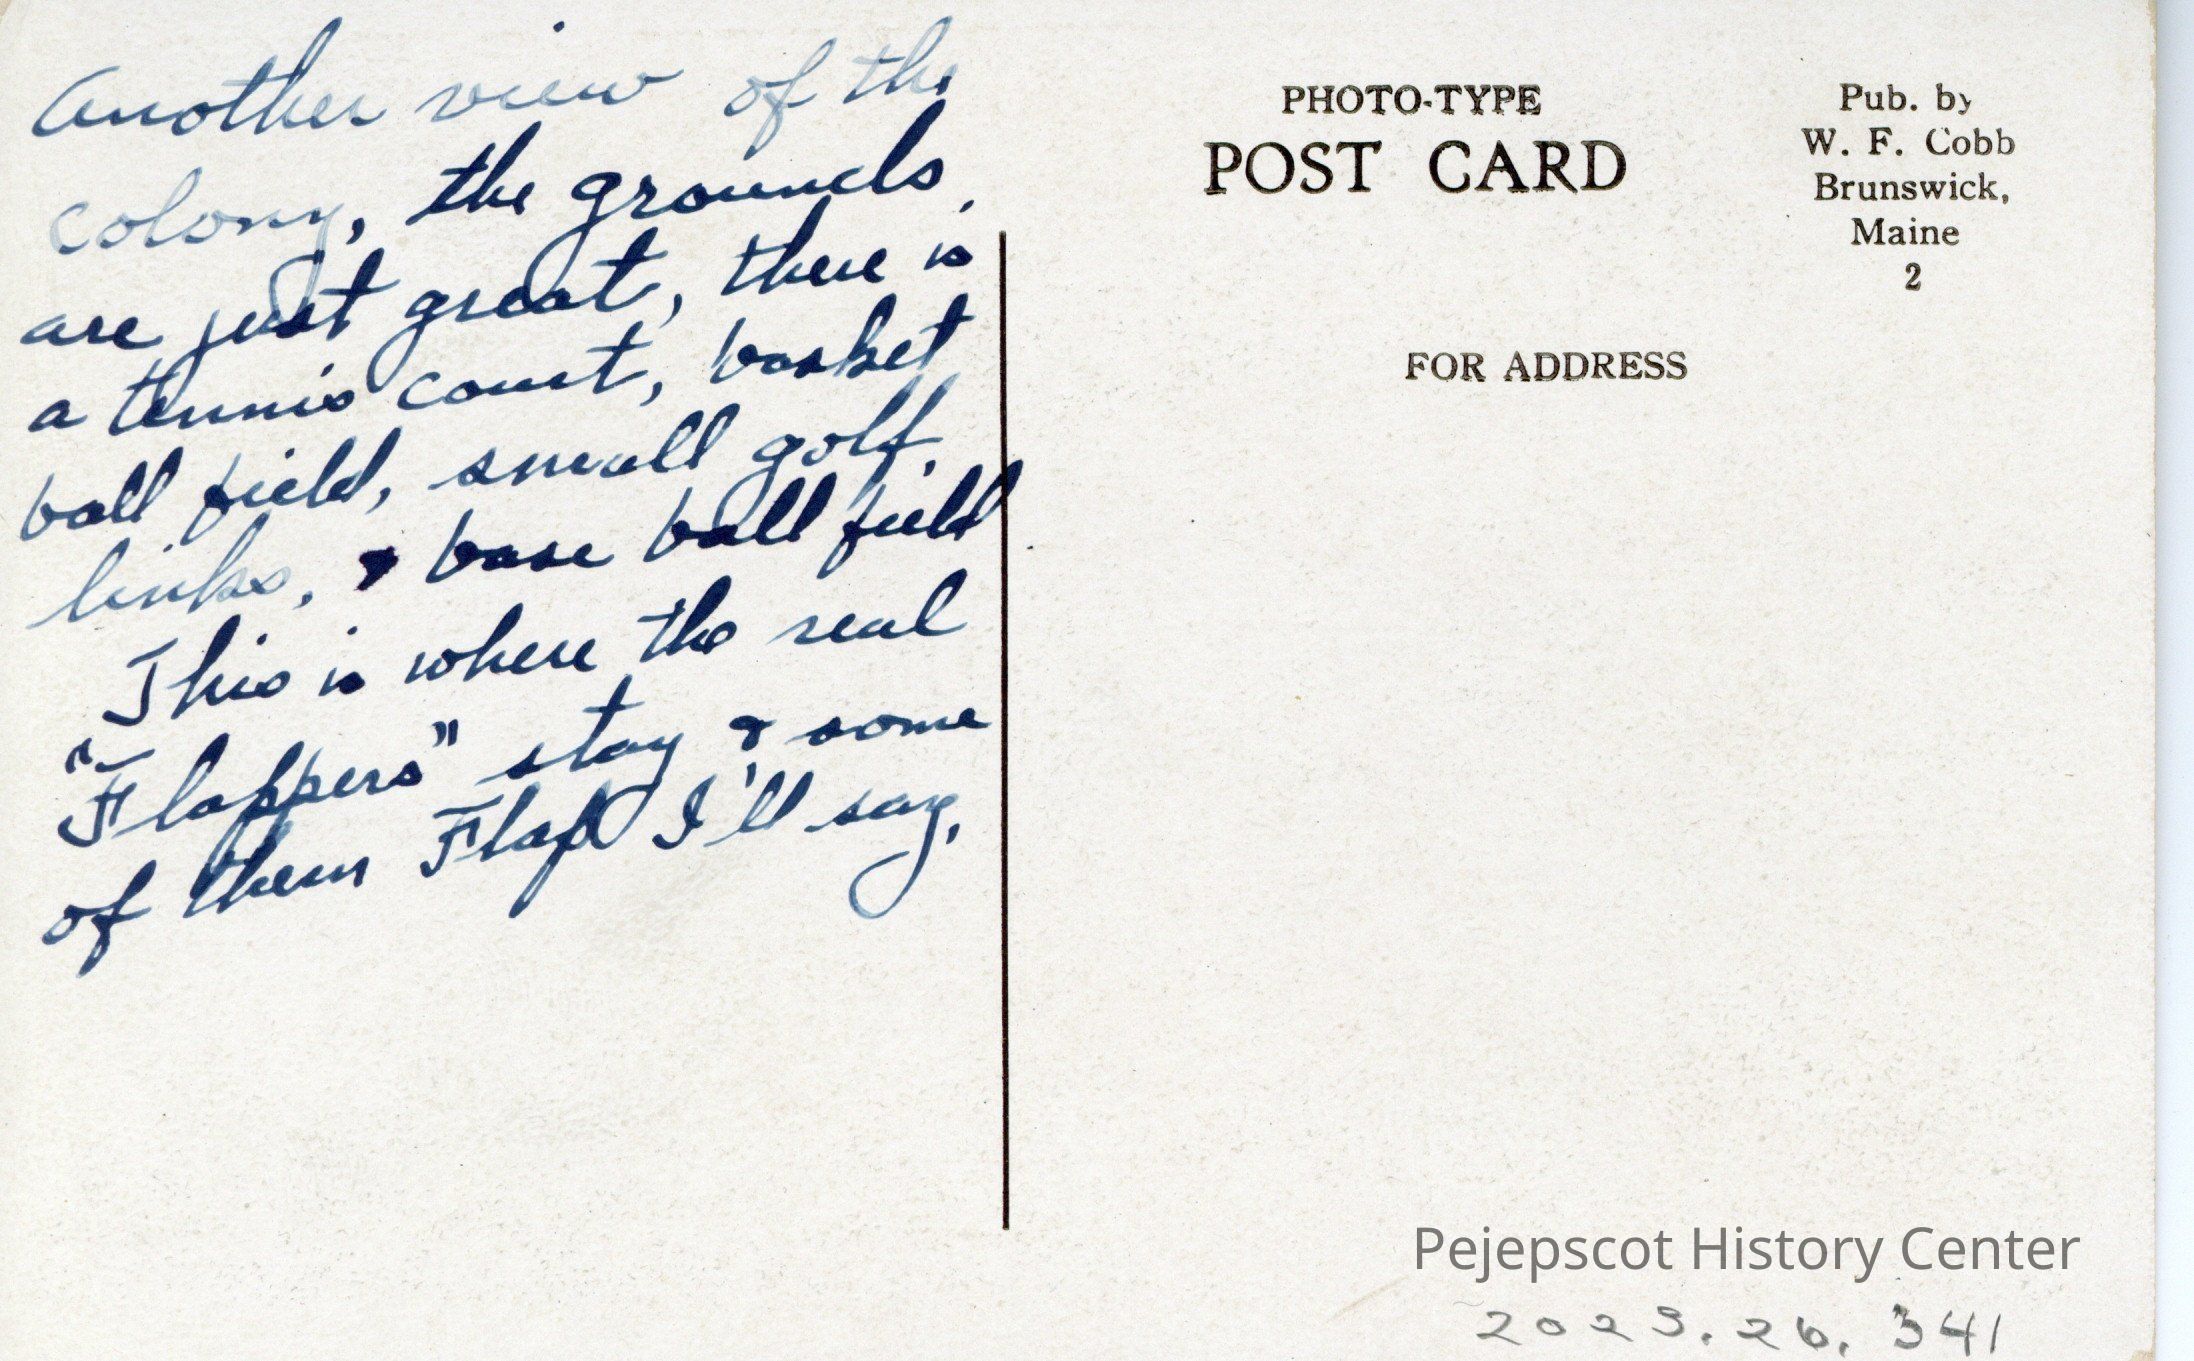 Another view of the
colony, the grounds
are just great, there is
a tennis court, basket
ball field, small golf
links, & base ball field
This is where the real
"Flappers" stay & some
of them Flap I'll say,
PHOTO-TYPE
POST CARD
Pub. by
W. F. Cobb
Brunswick,
Maine
2
FOR ADDRESS
Pejepscot History Center
2023.26.341